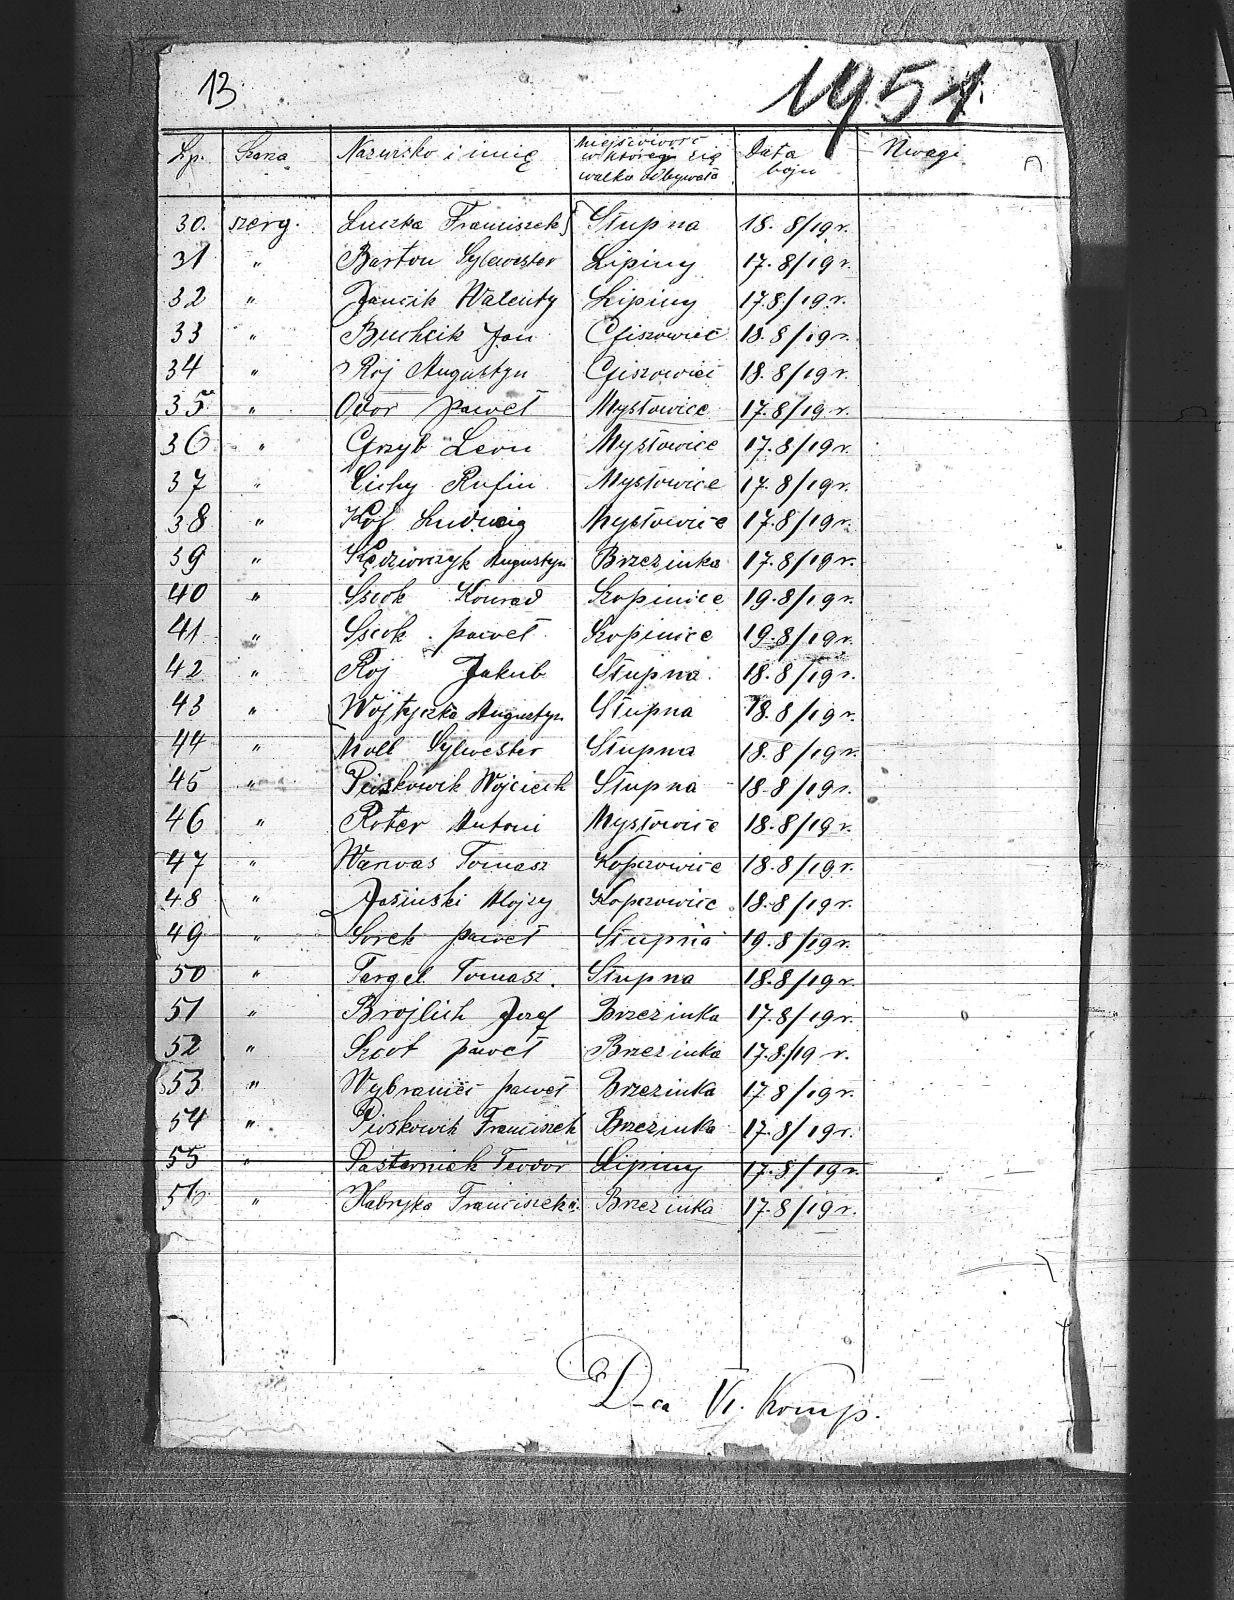 13
1951
Lp. Szarża Nazwisko i imię Miejscowość w której się walka odbywała Data boju Uwagi
30. szerg. Luczka Franciszek Słupna 18. 8/19r.
31 " Barton Sylwester Lipiny 17. 8/19r.
32 " Jancik Walenty Lipiny 17.8/19r.
33 " Buchcik Jan Giszowiec 18.8/19r.
34 " Roj Augustyn Giszowiec 18.8/19r.
35 " Odor paweł Mysłowice 17.8/19r.
36 " Grzyb Leon Mysłowice 17.8/19r.
37 " Cichy Rufin Mysłowice 17.8/19r.
38 " Kof Ludwig Mysłowice 17.8/19r.
39 " Kędziorczyk Augustyn Brzezinka 17.8/19r.
40 " Konrad Szopinice 19.8/19r.
41 " paweł Szopinice 19.8/19r.
42 " Roj Jakub Słupna 18.8/19r.
43 " Wojtyczka Augustyn Słupna 18.8/19r.
44 " Moll Sylwester Słupna 18.8/19r.
45 " Pioskowik Wojciech Słupna 18.8/19r.
46 " Roter Antoni Mysłowice 18.8/19r.
47 " Warwas Tomasz Koperowice 18.8/19r.
48 " Jasinski Alojzy Koperowice 18.8/19r.
49 " Sorek paweł Słupna 19.8/19r.
50 " Targel Tomasz. Słupna 18.8/19r.
51 " Brojlich Jozef Brzezinka 17.8/19r.
52 " paweł Brzezinka 17.8/19 r.
53 " Wybraniec paweł Brzezinka 17.8/19r.
54 " Pioskowik Franciszek Brzezinka 17.8/19r.
55 " Pasternick Teodor Lipiny 17.8/19r.
56 " Habryka Franciszek Brzezinka 17.8/19r.
D-ca VI. Komp.